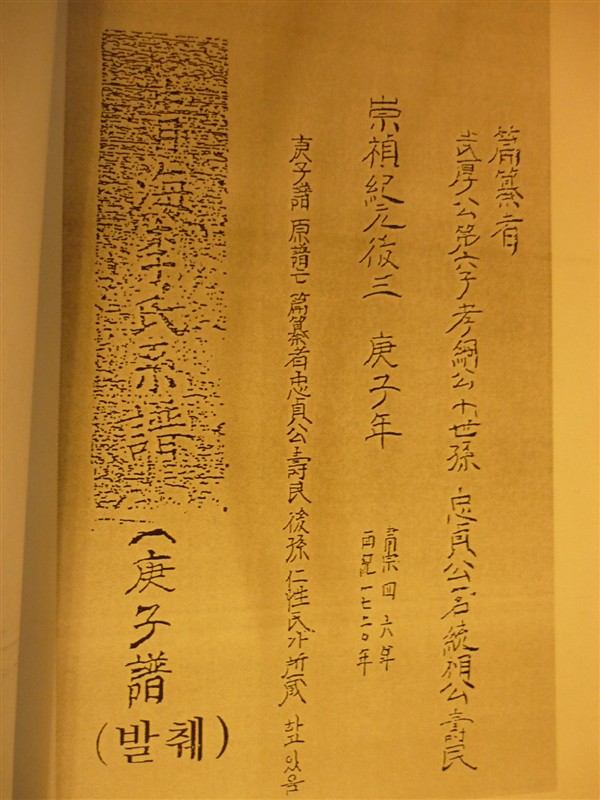 篇纂者
武厚公第六子 孝綱公 十世孫 忠貞公 名統相公 壽民
崇禎紀元後三 庚子年
肅宗四六年
西紀一七二〇年
庚子譜 原譜는 篇纂者忠貞公壽民 後孫 仁性氏가 所藏 하고 있음
靑海李氏系譜
(庚子譜
(발췌)